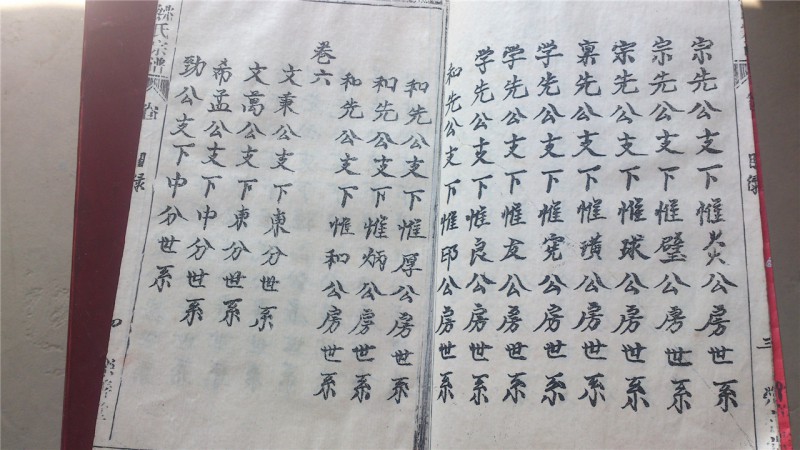 宗先公支下惟焱公房世系
宗先公支下惟璧公房世系
宗先公支下惟球公房世系
禀先公支下惟璜公房世系
学先公支下惟宪公房世系
学先公支下惟友公房世系
学先公支下惟良公房世系
和先公支下惟邛公房世系
目录
三
和先公支下惟厚公房世系
和先公支下惟炳公房世系
和先公支下惟和公房世系
卷六
文秉公支下東分世系
文萬公支下東分世系
希孟公支下中分世系
勁公支下中分世系
氏宗譜
目录